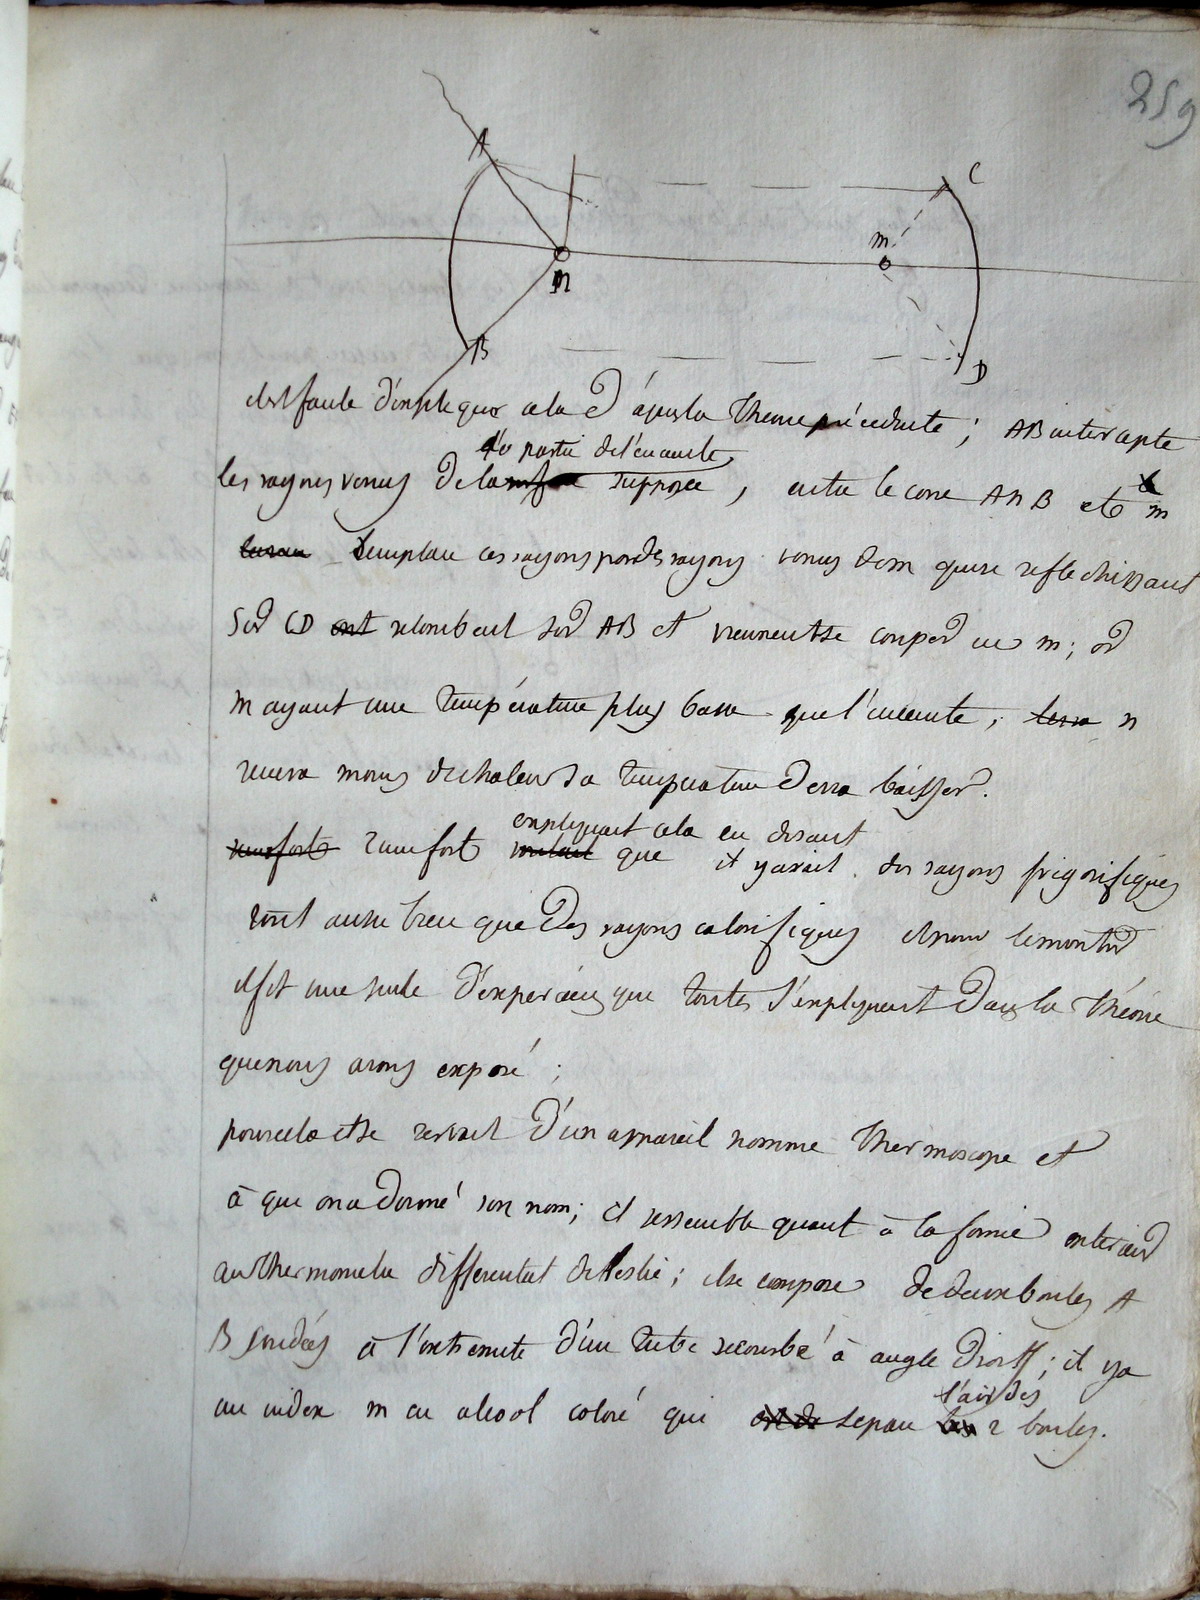 259
A
C
m
n
B
D
il est facile d'expliquer cela d'après la theorie précedente ; AB intercepte
d'o partie de l'enceinte
les rayons venus de la supposée , entre le cone AnB et
remplace ces rayons par des rayons venus de m qui se reflechissant
sur CD ont retombent sur AB et viennent se couper en m ; or
m ayant une température plus basse que l'enceinte , n
recevra moins de chaleur sa temperature devra baisser.
expliquait cela en disant
rumfort rumfort voulait que il y avait des rayons frigorifiques
tout aussi bien que des rayons calorifiques et pour le montrer
il fit une suite d'experiences que toutes s'expliquent dans la théorie
que nous avons exposé ;
pour cela il se servait d'un appareil nomme thermoscope et
à qui on a donné son nom ; il ressemble quant à la forme exterieur
au thermometre differentiel de Leslie ; il se compose de deux boules A
B soudées à l'extremite d'un tube recourbé à angle droit ; il y a
l'air des
un index m en alcool coloré qui separe les 2 boules.